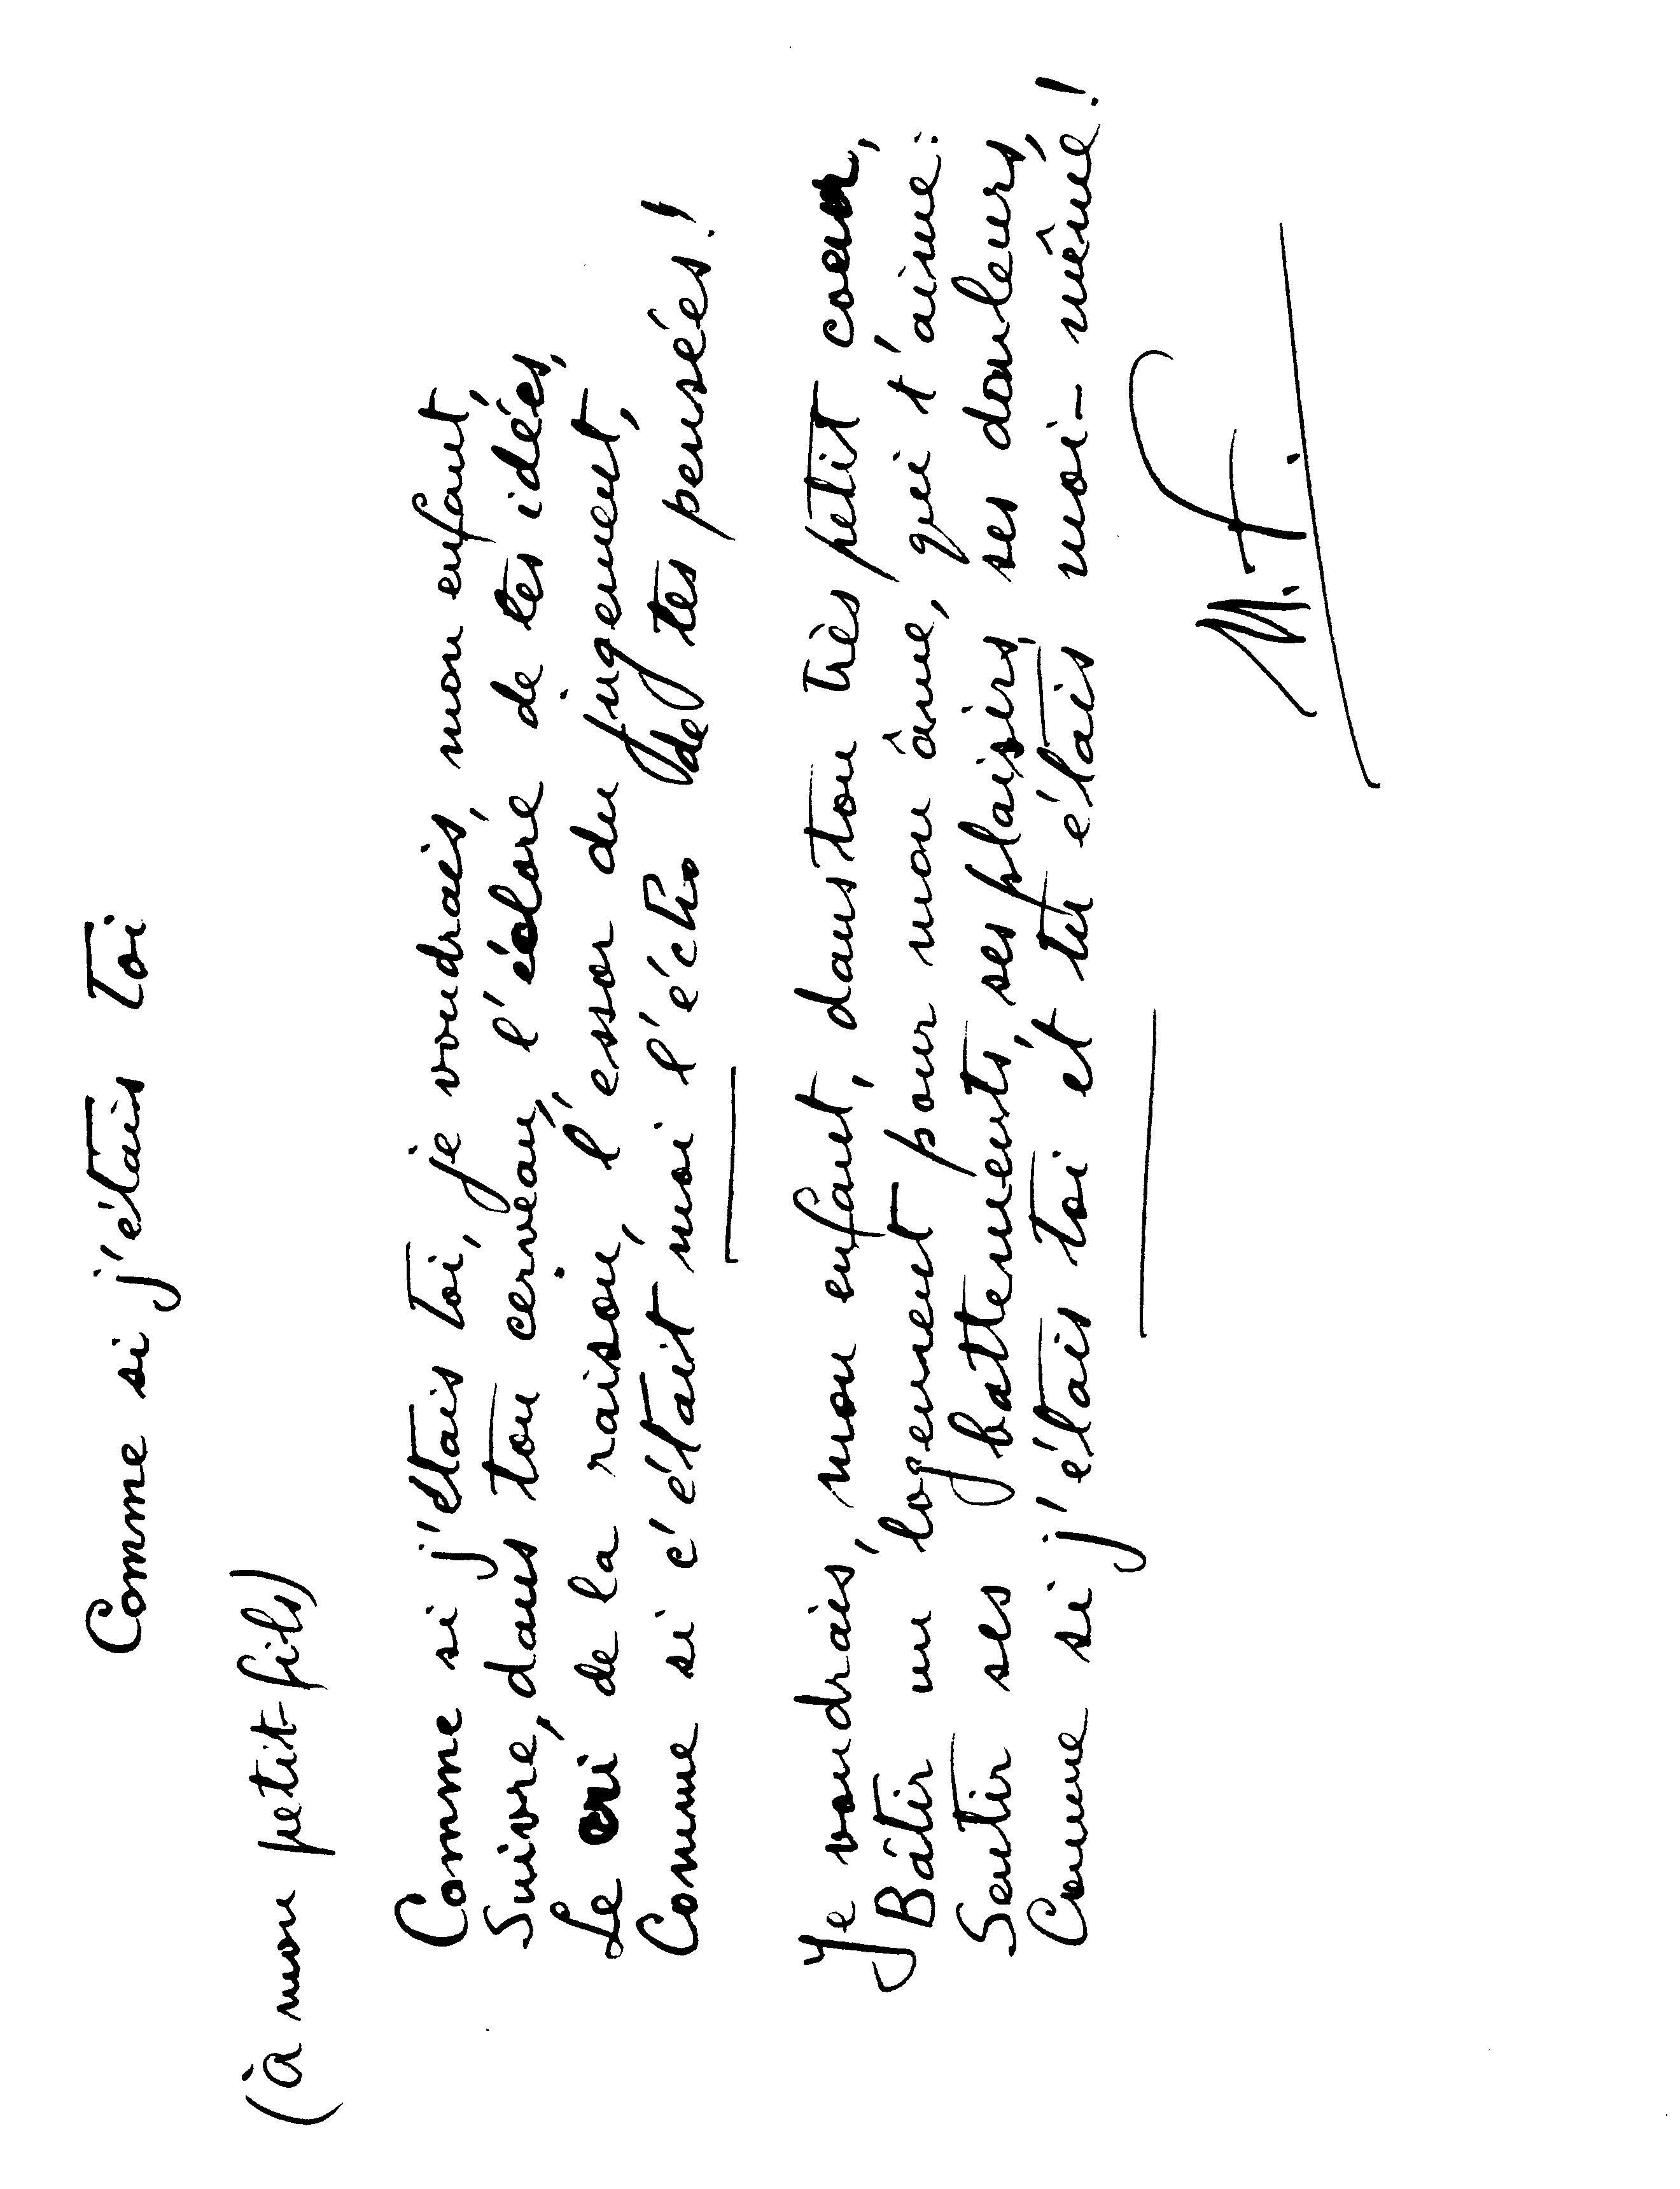 Comme si j'étais toi
(à mon petit-fils)
Comme si j'étais toi, je voudrais, mon enfant,
Suivre, dans ton cerveau, l'éclore de tes idées,
Le cri de la raison, l'essor du jugement,
Comme si c'était moi l'écho de tes pensées!
Je voudrais, mon enfant, dans ton très petit coeur,
Bâtir un logement pour mon âme, qui t'aime:
Sentir ses battements, ses plaisirs, ses douleurs,
Comme si j'étais toi et tu étais moi-même!
M.F.